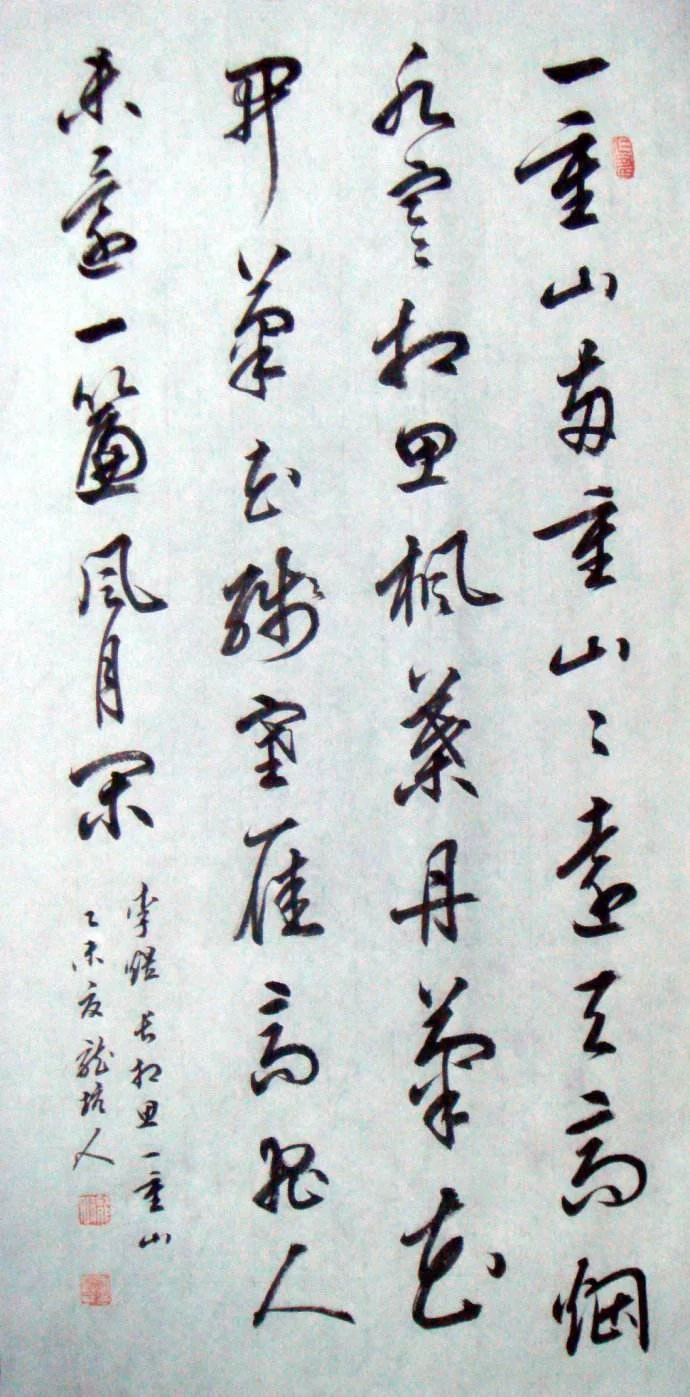 一重山兩重山々遠天高烟
水寒相思楓葉丹菊花
開菊花殘塞雁高飛人
未還一簾風月閑
李煜長相思一重山
乙未夏龍坑人